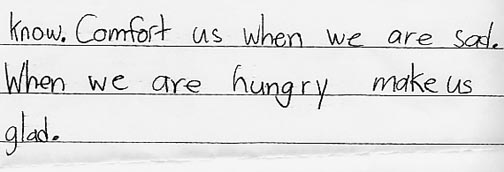 know. Comfort us when we are sad.
When we are hungry make us
glad.